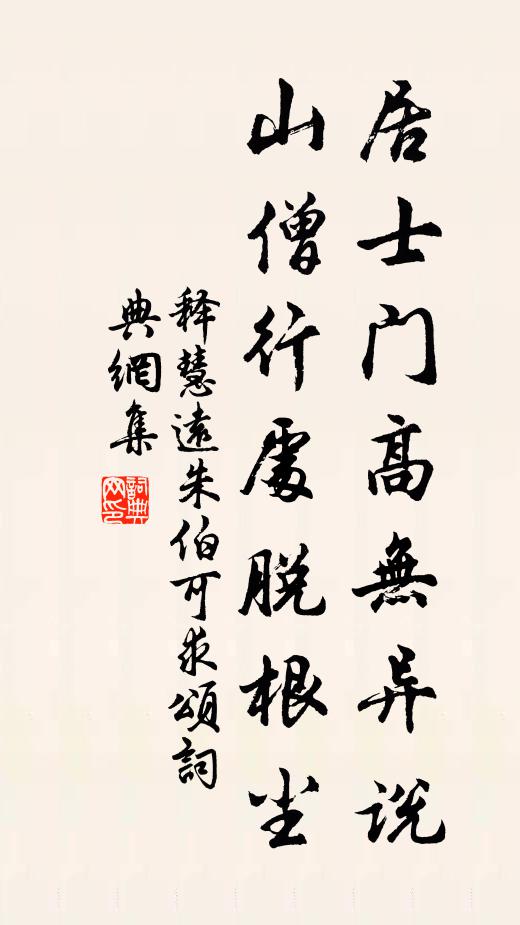 居士门高無异说
山僧行處脱根尘
释慧遠朱伯可求頌詞
典網集
詞典
网印